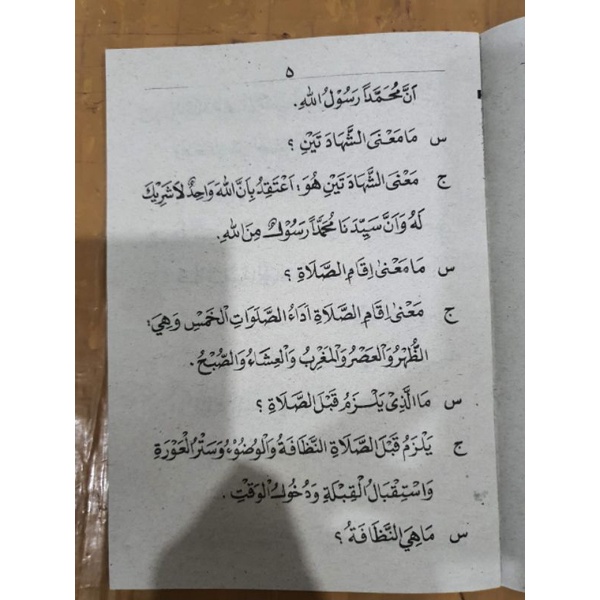 ٥
اَنَّ مُحَمَّدًا رَسُوْلُ اللهِ.
س مَا مَعْنَى الشَّهَادَتَيْنِ ؟
ج مَعْنَى الشَّهَادَتَيْنِ هُوَ: اَعْتَقِدُ بِاَنَّ اللهَ وَاحِدٌ لَاشَرِيْكَ
لَهُ وَاَنَّ سَيِّدَنَا مُحَمَّدًا رَسُوْلٌ مِنَ اللهِ.
س مَا مَعْنٰى اِقَامِ الصَّلَاةِ ؟
ج مَعْنٰى اِقَامِ الصَّلَاةِ اَدَاءُ الصَّلَوَاتِ الْخَمْسِ وَهِيَ:
الظُّهْرُ وَالْعَصْرُ وَالْمَغْرِبُ وَالْعِشَاءُ وَالصُّبْحُ.
س مَا الَّذِيْ يَلْزَمُ قَبْلَ الصَّلَاةِ ؟
ج يَلْزَمُ قَبْلَ الصَّلَاةِ النَّظَافَةُ وَالْوُضُوْءُ وَسَتْرُ الْعَوْرَةِ
وَاسْتِقْبَالُ الْقِبْلَةِ وَدُخُوْلُ الْوَقْتِ.
س مَا هِيَ النَّظَافَةُ ؟